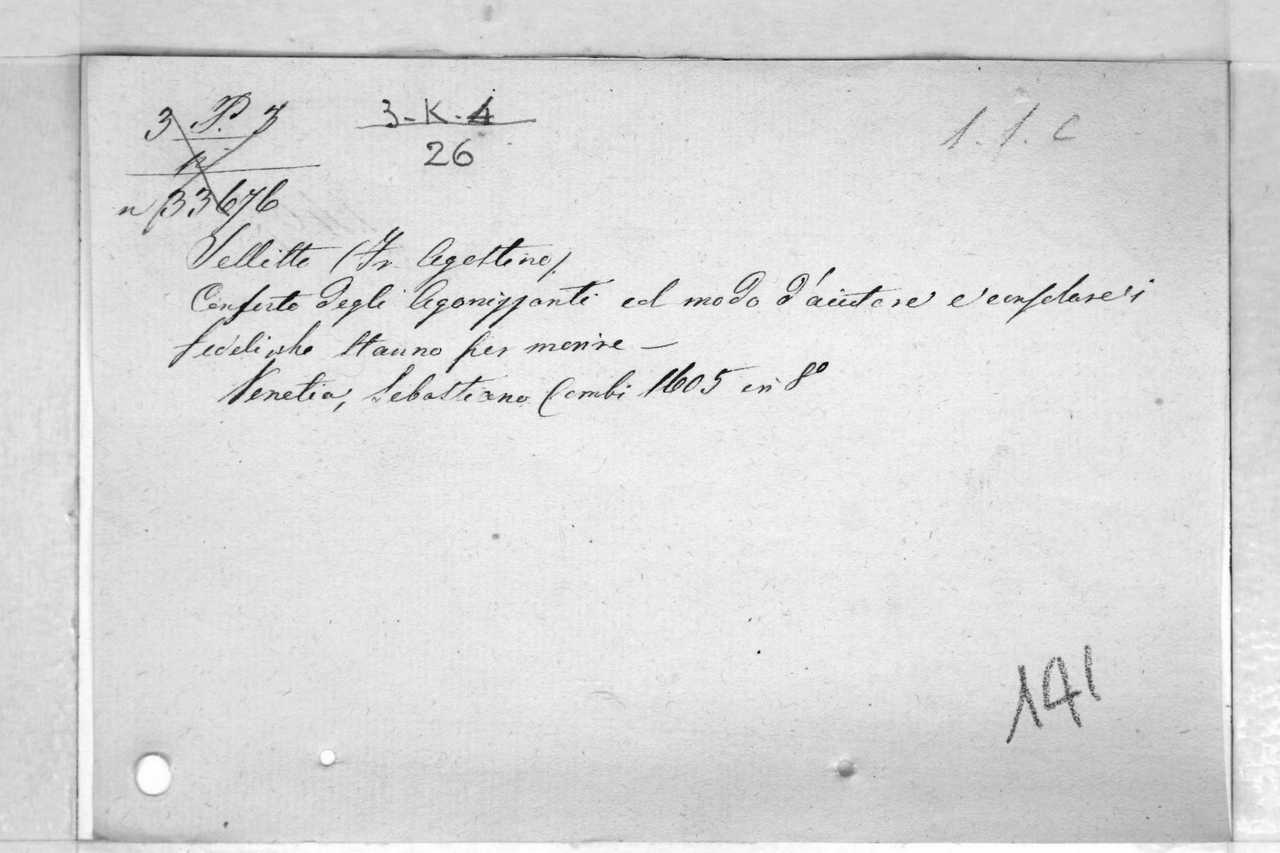 3 P. 3
n 33676
3-K-4
26
1. 1. C
Sellitto (Fr. Agostino).
Conforto degli Agonizzanti ed modo d'aiutare e consolare i
fedeli, che stanno per morire —
Venetia, Sebastiano Combi 1605 in 8º
141